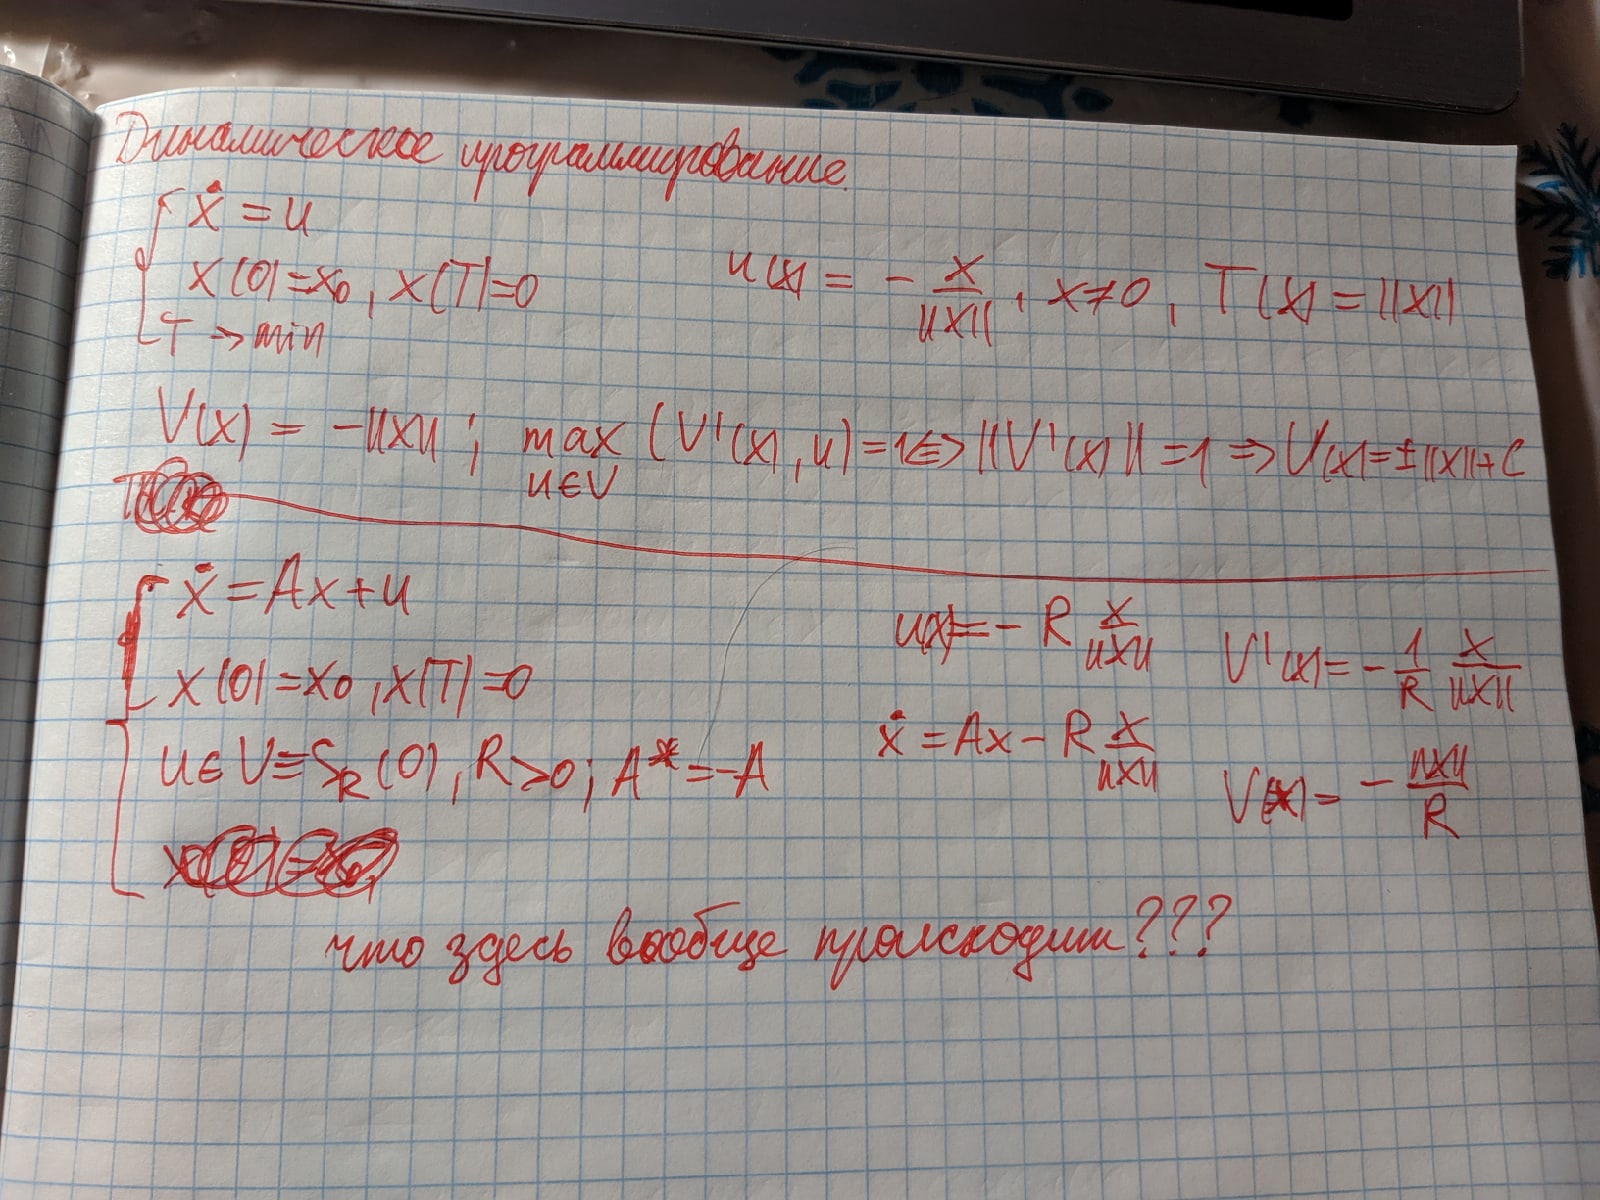 Динамическое программирование.
ẋ = u
x(0)=x₀, x(T)=0
T → min
u(x) = - x/||x||, x≠0, T(x) = ||x||
V(x) = -||x||; max (V'(x), u) = 1 ⇔ ||V'(x)|| = 1 ⇒ V(x)=±||x||+C
u∈V
ẋ = Ax+u
x(0)=x₀, x(T)=0
u∈V≡S_R(0), R>0; A*=-A
u(x)=- R x/||x||
ẋ = Ax - R x/||x||
V'(x)= - 1/R x/||x||
V(x)= - ||x||/R
что здесь вообще происходит???